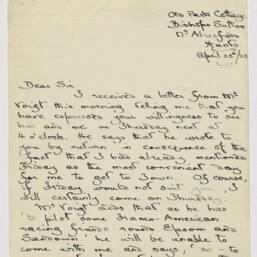 Old Park Cottage,
Bishops Sutton
Nr Alresford
Hants
April 22nd/23
Dear Sir
I received a letter from Mr
Voigt this morning telling me that you
have expressed your willingness to see
him and me on Thursday next at
4 o'clock. He says that he wrote to
you by return in consequence of the
fact that I had already mentioned
Friday as the most convenient day
for me to get to Town. Of course,
if Friday would not suit you, I
will certainly come on Thursday.
Mr Voigt adds that as he has
to pilot some Franco-American
racing friends round Epsom and
Sandown, he will be unable to
come with me and says, as to